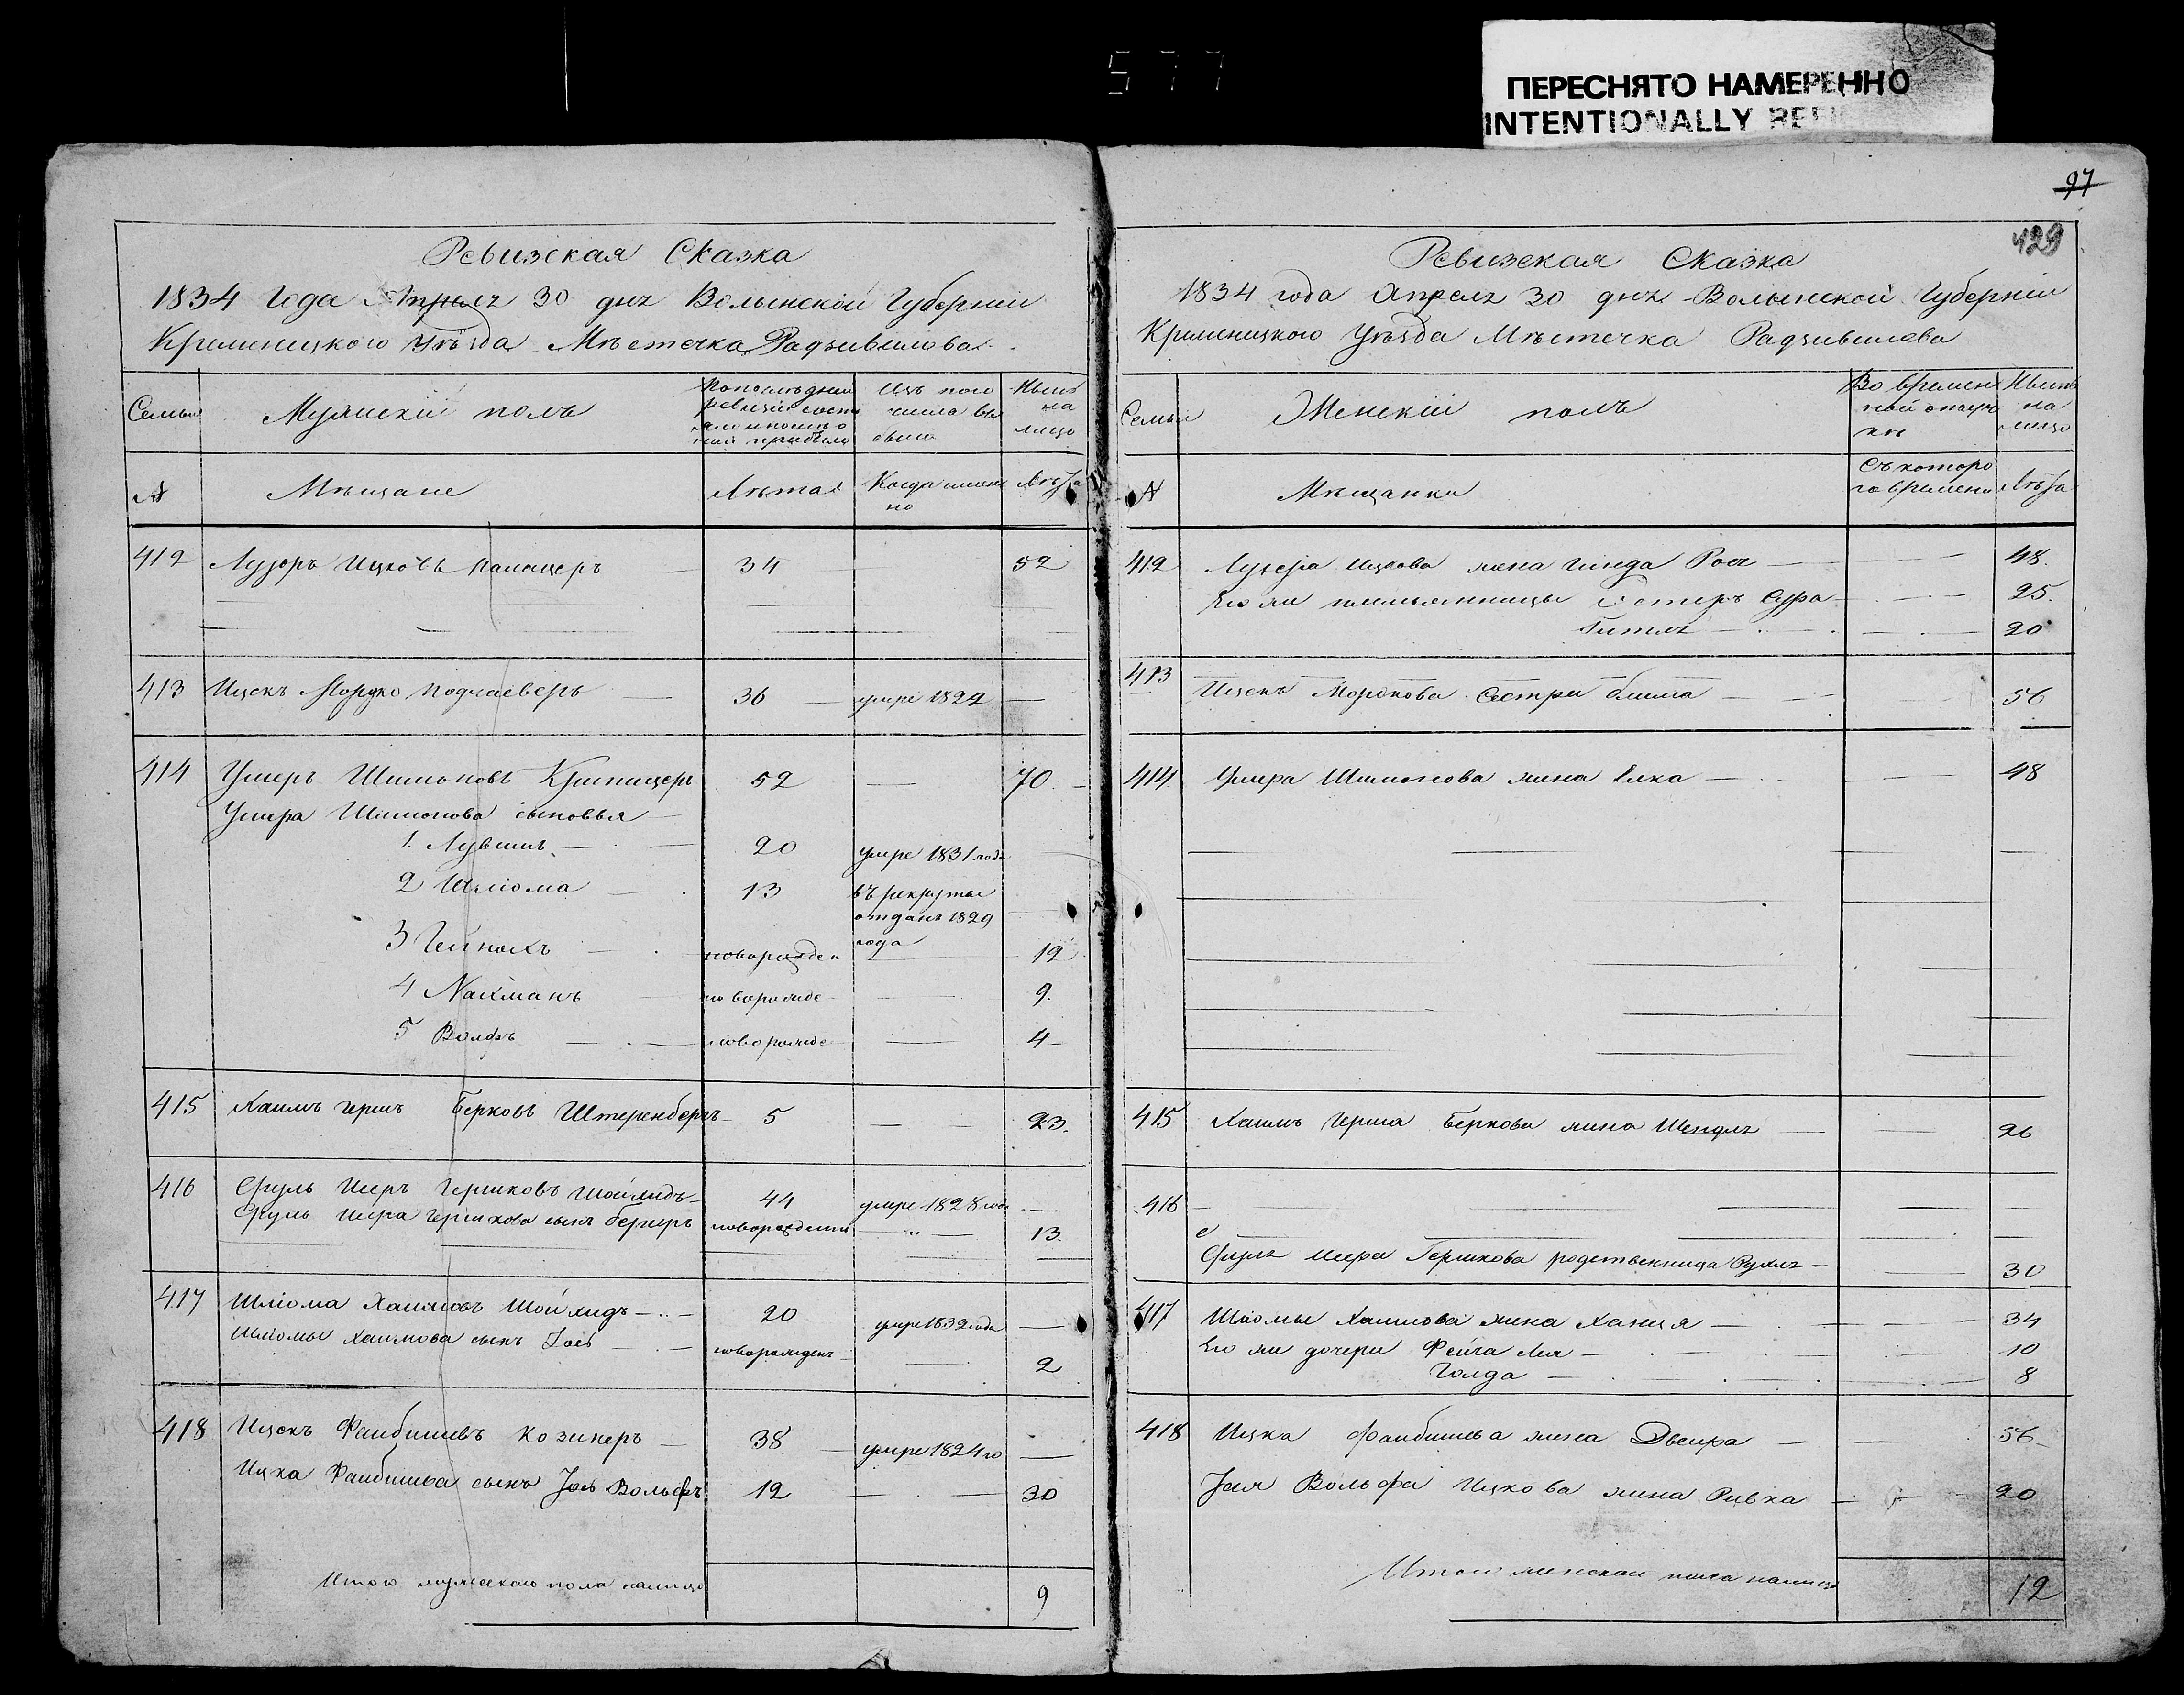 577
ПЕРЕСНЯТО НАМЕРЕННО
INTENTIONALLY
97
Ревизская Сказка
1834 Года Апреля 30 дня Волынской Губерніи
Кременецкого Уѣзда Мѣстечка Радзивилова
Семьи
Мужескій полъ
Изъ того числа выбыло
Нынѣ на лицо
№
Мѣщане
Лѣта
Когда именно
Лѣта
412 Лузоръ Ицковъ 34 52
413 Ицекъ Мордко Подкаеверъ 36 умре 1822 —
414 Умеръ Шимоновъ Криницеръ 52 — 70
Умера Шимонова сыновья
1. Лувишъ 20 умре 1831 года
2 Шліома 13 въ рекруты отданъ 1829 года
3 Гейнахъ новорожден 19
4 Нахманъ новорожде — 9.
5 Волфъ новорожде — 4
415 Хаимъ Гершъ Берковъ Штеренбергъ 5 — 23.
416 Сруль Мееръ Гершковъ Шойхидъ 44 умре 1828 года —
Сруль Меера Гершкова сынъ Бериръ новорожденны 13.
417 Шліома Хаимовъ Шойхидъ 20 умре 1832 года —
Шліомы Хаимова сынъ Іось новорожден — 2
418 Ицекъ Фаибишевъ Козинеръ 38 умре 1824 го —
Ицка Фаибишева сынъ Іось Вольфъ 12 — 30
Итого мужескаго пола налицо 9
429
Ревизская Сказка
1834 года Апреля 30 дня Волынской Губерніи
Кременицкого Уѣзда Мѣстечка Радзивилова
Семьи
Женскій полъ
Во временной отлучкѣ
Нынѣ на лицо
№
Мѣщанки
Съ которого времени
Лѣта
412 Лузера Ицкова жена Гинда Роса 48.
Его же племянницы Естеръ Сура 25.
Гитля 20
413 Ицека Мордкова Сестра блима 56
414 Умера Шимонова жена Елка — 48
415 Хаимъ Герша Беркова жена Шендля 26
416
Сруля Меера Гершкова родственница Рухля 30
417 Шліомы Хаимова жена Ханця 34
Его же дочери Фейга Лея — 10
Голда — 8
418 Ицка Фаибишева жена Двейра 56
Іося Вольфа Ицкова жена Ривка 20
Итого женскаго пола налицо 12